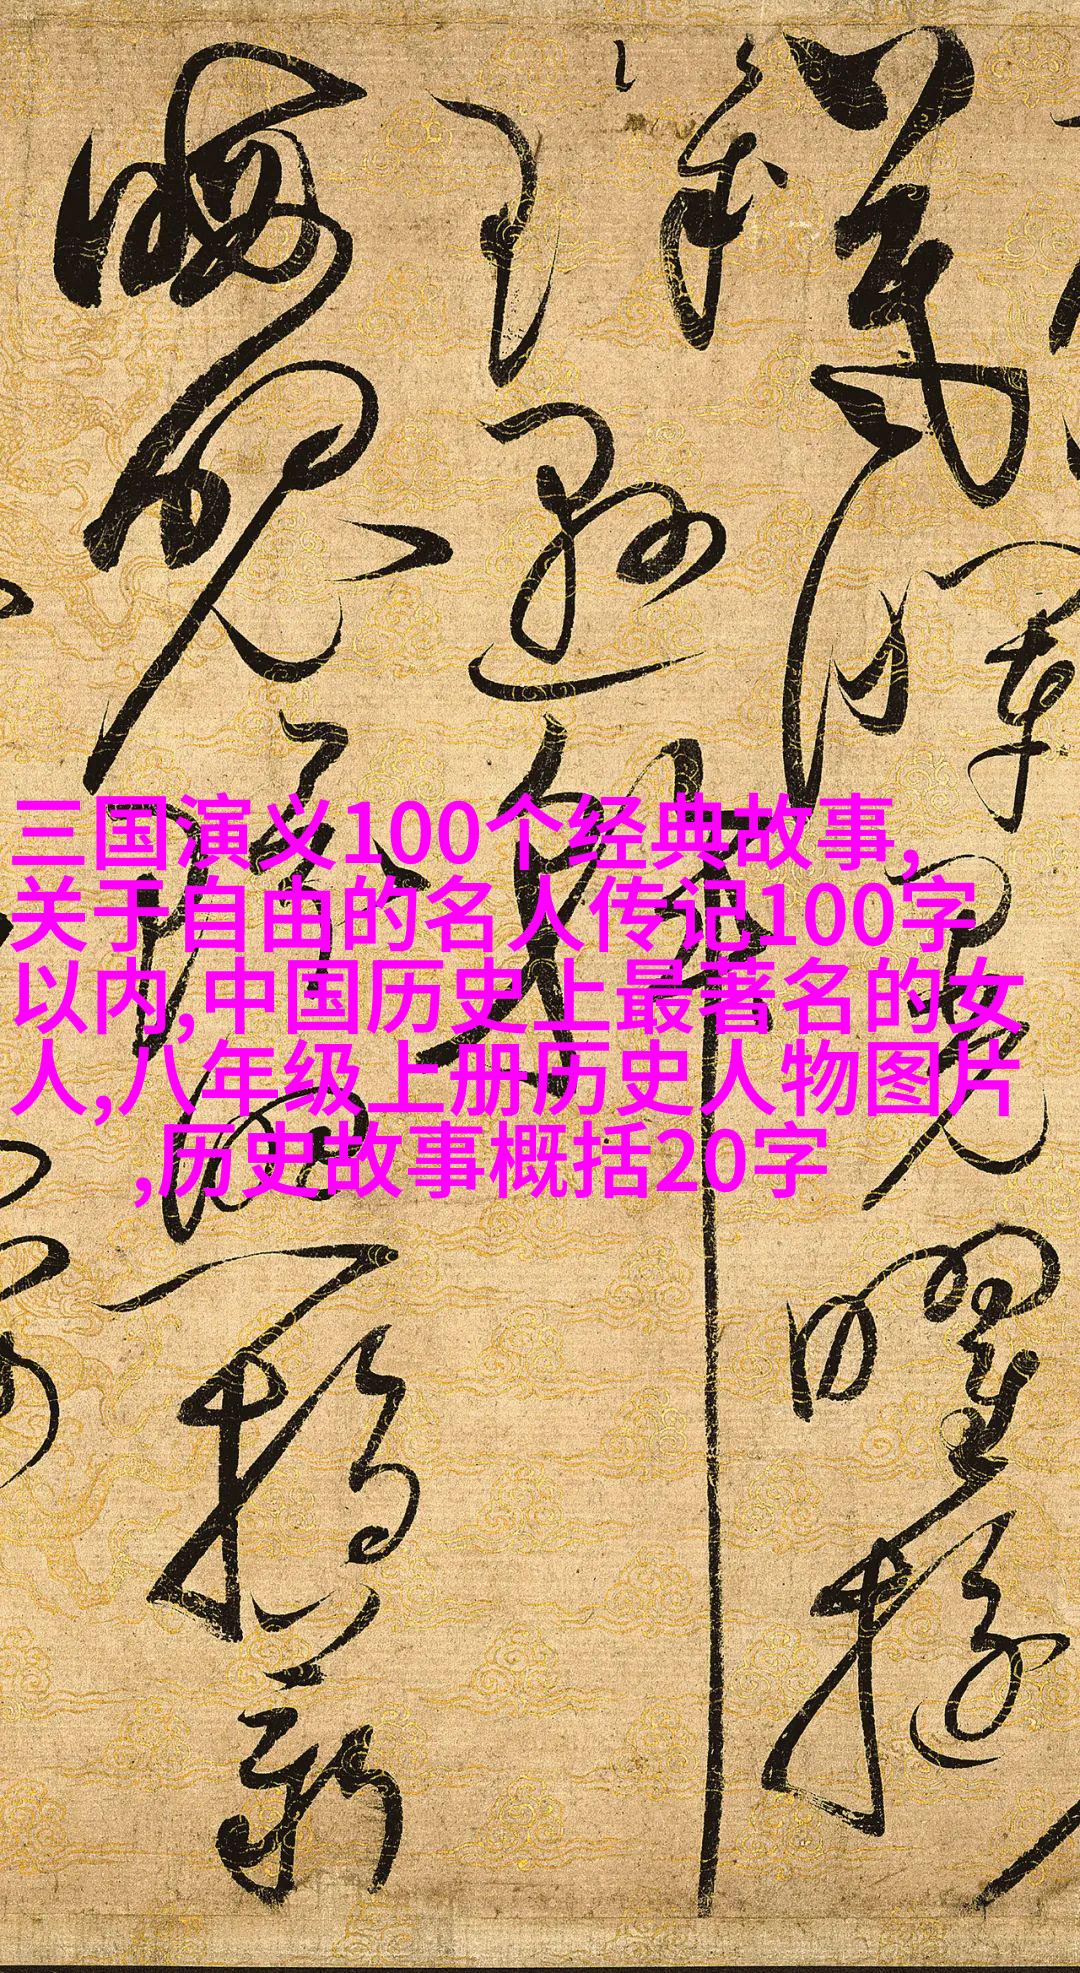 羲暉晃曜璇
璣懸斡
晦魄環照指薪
三国演义100个经典故事,
关于自由的名人传记100字
以内,中国历史上最著名的女
人,八年级上册历史人物图片
,历史故事概括20字